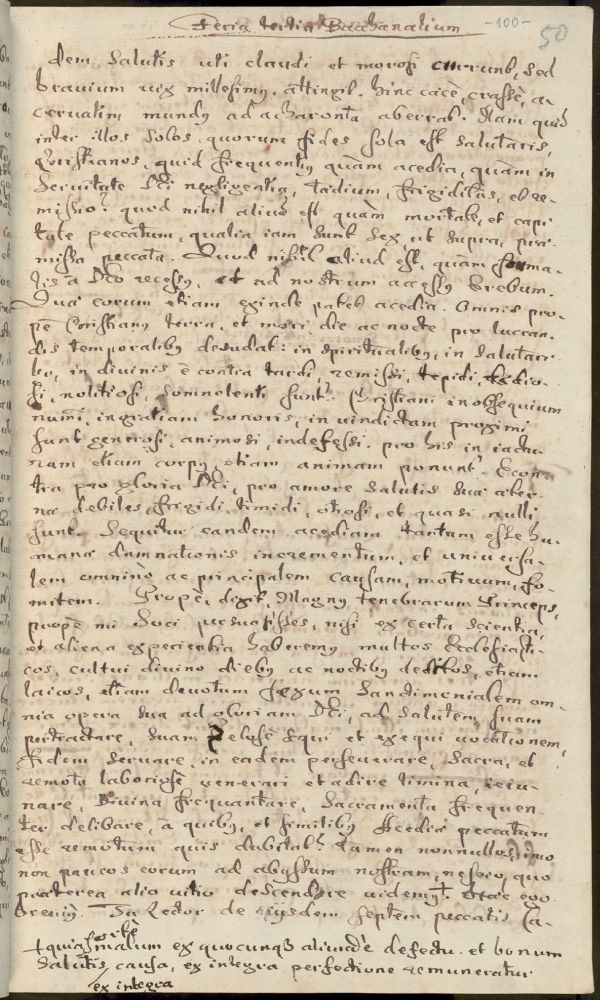 Feria tertia Bacchanalium -100- 50
dem salutis uti claudi et morosi currunt, sed
bravium vix millesimus attingit. hinc caecè, crassè, a-
cervatim mundus ad acharonta aberrat. Nam quid
inter illos solos, quorum fides sola est salutaris,
Christianos, quid frequentius quàm acedia, quàm in
servitute Dei negligentia, taedium, frigiditas, et re-
missio? quod nihil aliud est quàm mortale, et capi-
tale peccatum, qualia iam sunt sex, ut supra, prae-
missa peccata. Quod nihil aliud est, quàm forma-
lis à Deo recessus, et ad nostrum accessus Erebum.
Quae eorum etiam exinde patet acedia. Omnis pro-
pè Christianus terra, et mari die ac nocte pro lucran-
dis temporalibus desudat: in spiritualibus, in salutari-
bus, in divinis è contra tardi, remissi, tepidi, taedio-
si, otiosi, somnolenti sunt. Christiani in obsequium
numi, in gratiam honoris, in vindictam proximi
sunt generosi, animosi, indefessi. pro his in iactu-
ram etiam corpus, etiam animam ponunt. Econ-
tra pro gloria Dei, pro amore salutis suae aeter-
nae debiles, frigidi, timidi, otiosi, et quasi nulli
sunt. Sequitur eandem acediam tantum esse hu-
manae damnationis incrementum, et universa-
lem omninò ac principalem causam, motivum, fo-
mitem. Propè, dixit, Magnus tenebrarum Princeps,
propè mi Soci persuasisses, nisi ex certa scientia,
et aliena experientia haberemus multos Ecclesiasti-
cos, cultui divino diebus ac noctibus deditos, etiam
laicos, etiam devotum sexum Sanctimonialem om-
nia opera sua ad gloriam Dei, ad salutem suam
pertractare, suam zelosè sequi et exequi vocationem,
fidem servare, in eadem perseverare, sacra, et
remota laboriosè venerari et adire limina, ieiu-
nare, Divina frequentare, Sacramenta frequen-
ter delibare, à quibus, et similibus Acediae peccatum
esse remotum quis dubitat? tamen nonnullos, imo
non paucos eorum ad abyssum nostram, nescio, quo
praeterea alio vitio descendere videmus.
brevius. Tu Rector de eiusdem septem peccatis Ca-
+ quia forte malum ex quocunque aliunde defectu. et bonum
salutis causa, ex integra perfectione remuneratur
ex integra